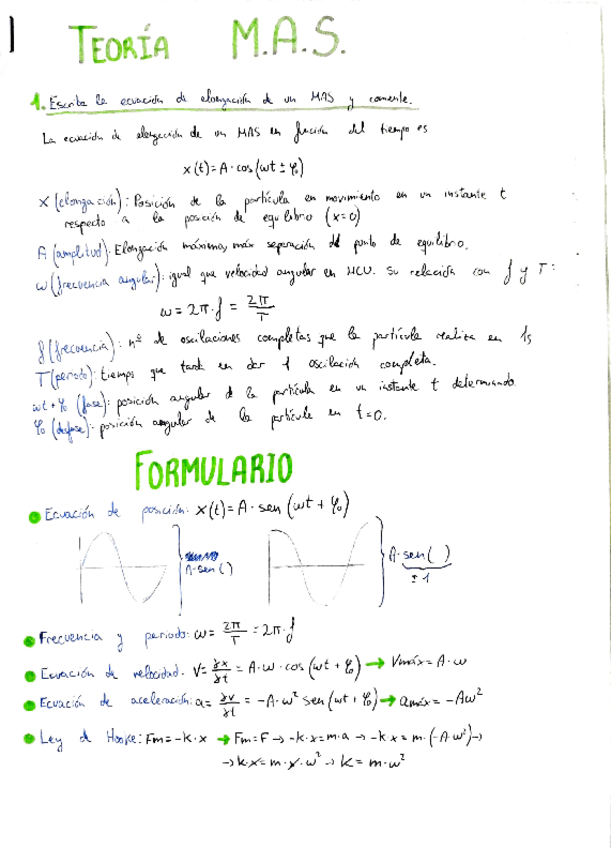 TEORÍA M.A.S.
1. Escriba la ecuación de elongación de un MAS y comente.
La ecuación de elongación de un MAS en función del tiempo es
x(t)=A·cos(ωt±φ₀)
X (elongación): Posición de la partícula en movimiento en un instante t
respecto a la posición de equilibro (x=0)
A (amplitud): Elongación máxima, máx separación del punto de equilibro.
ω (frecuencia angular): igual que velocidad angular en MCU. Su relación con f y T:
ω = 2π·f = 2π/T
f (frecuencia): nº de oscilaciones completas que la partícula realiza en 1s
T (periodo): tiempo que tarda en dar 1 oscilación completa.
ωt+φ₀ (fase): posición angular d la partícula en un instante t determinado.
φ₀ (desfase): posición angular de la partícula en t=0.
FORMULARIO
Ecuación de posición: x(t)=A·sen(ωt+φ₀)
A·sen( )
A·sen( )
±1
Frecuencia y periodo: ω= 2π/T = 2π·f
Ecuación de velocidad. V= δx/δt = A·ω·cos(ωt+φ₀) → Vmáx=A·ω
Ecuación de aceleración: a= δv/δt = -A·ω² sen(ωt+φ₀) → amáx=-Aω²
Ley d Hooke: Fm=-k·x → Fm=F → -k·x=m·a → -kx=m·(-A·ω²) →
→ k·x=m·x·ω² → k=m·ω²